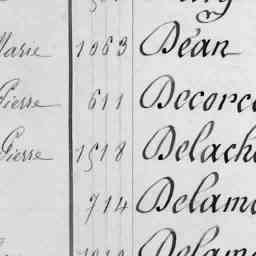 Marie 1063 Déan
Pierre 611 Decorc
Pierre 1518 Delach
714 Delam
Delam